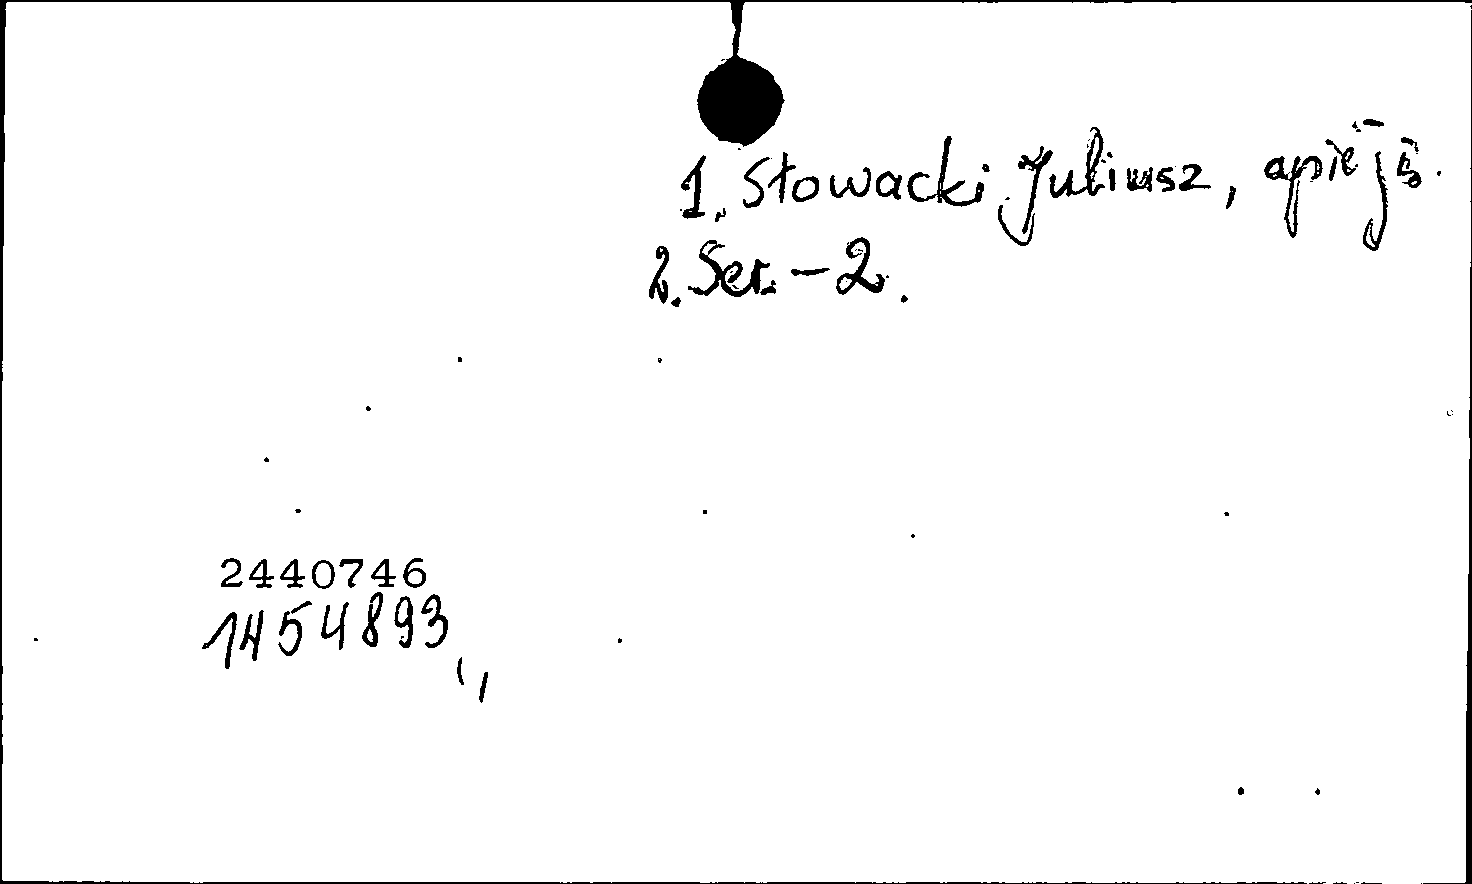 1. Słowacki Juliusz, apie jį.
2. Ser. – 2.
2440746
1454893